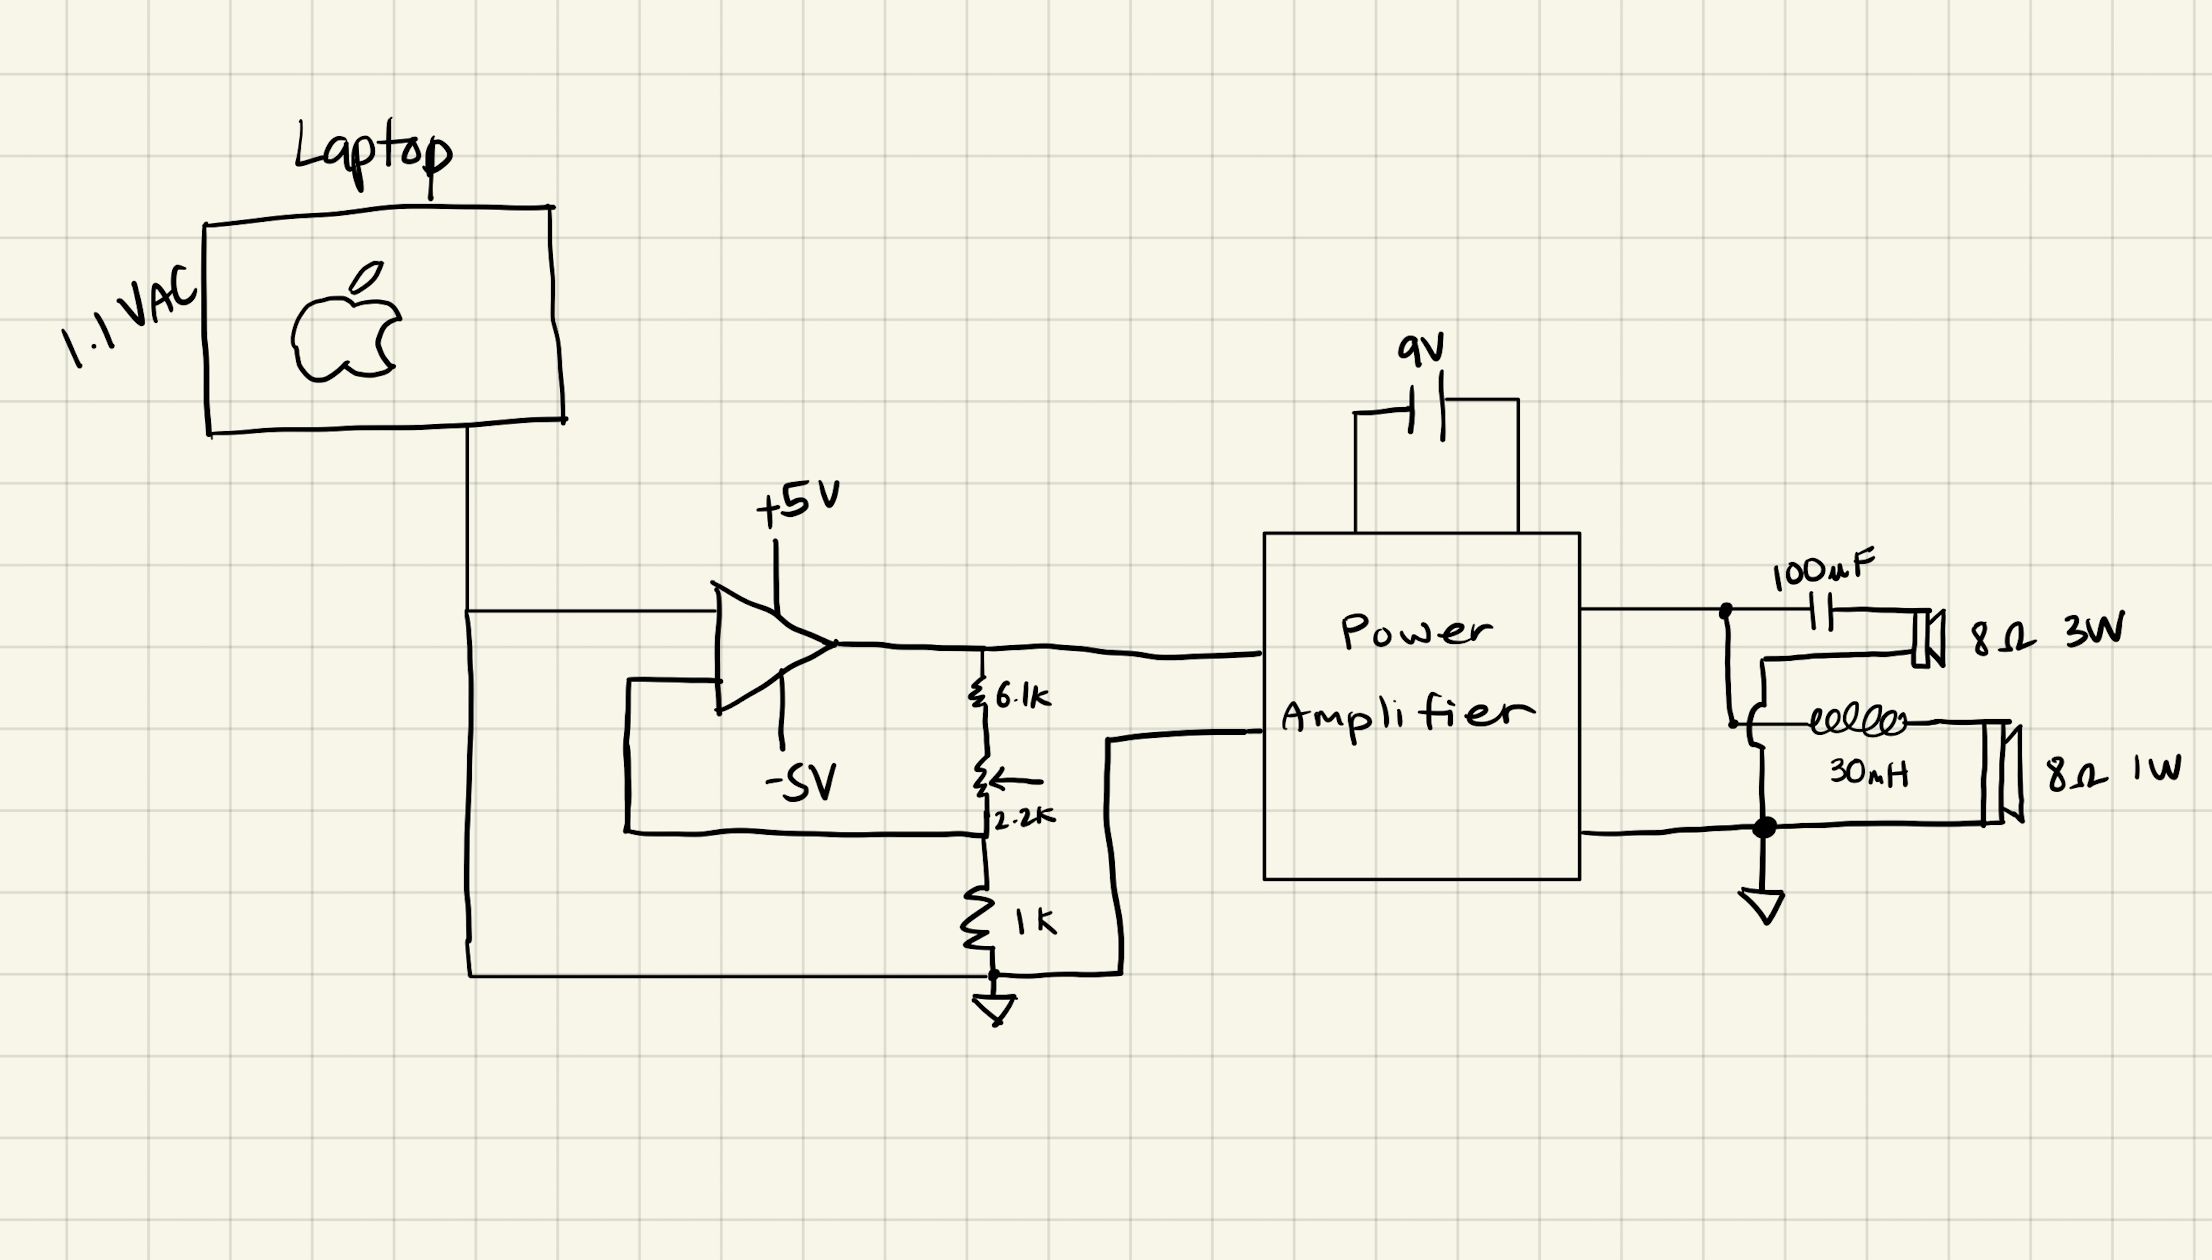 Laptop
1.1 VAC
+5V
-5V
6.1k
2.2k
1k
9V
Power
Amplifier
100uF
8Ω 3W
30mH
8Ω 1W